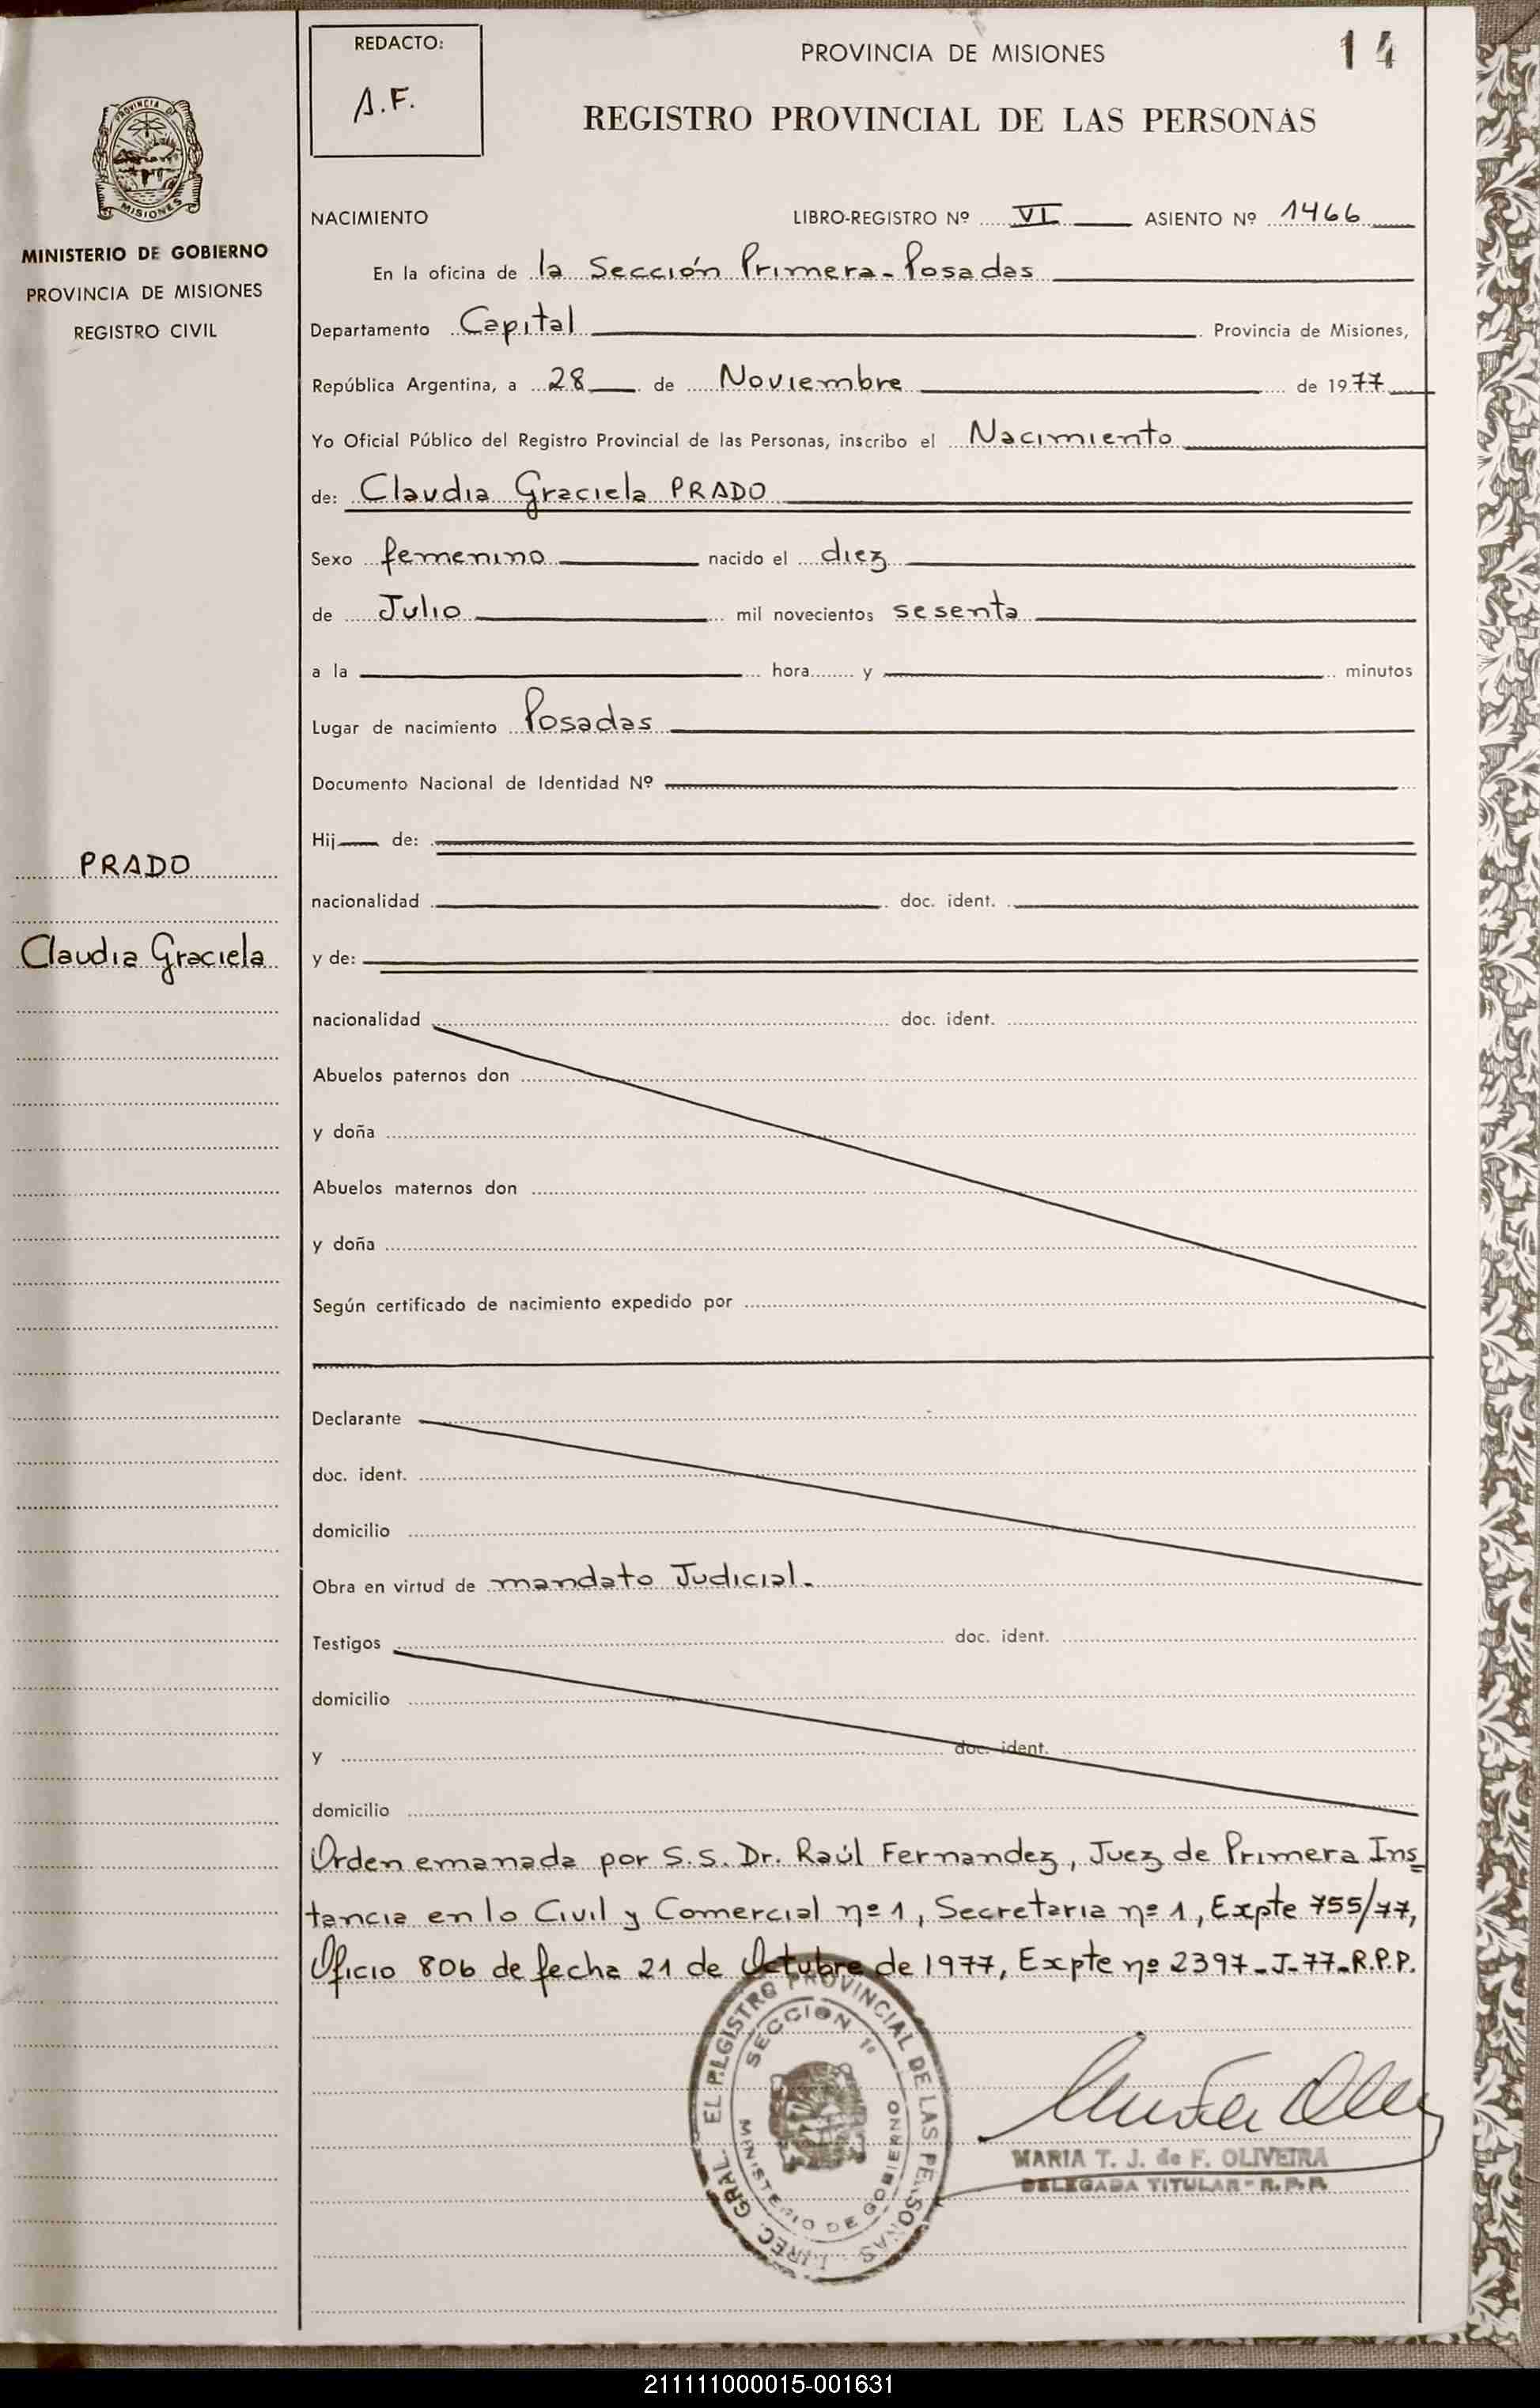 REDACTO:
A.F.
PROVINCIA DE MISIONES
14
REGISTRO PROVINCIAL DE LAS PERSONAS
PROVINCIA DE
MISIONES
MINISTERIO DE GOBIERNO
PROVINCIA DE MISIONES
REGISTRO CIVIL
PRADO
Claudia Graciela
NACIMIENTO LIBRO-REGISTRO Nº VI ASIENTO Nº 1466
En la oficina de la Sección Primera - Posadas
Departamento Capital Provincia de Misiones,
República Argentina, a 28 de Noviembre de 1977
Yo Oficial Público del Registro Provincial de las Personas, inscribo el Nacimiento
de: Claudia Graciela PRADO
Sexo femenino nacido el diez
de Julio mil novecientos sesenta
a la hora y minutos
Lugar de nacimiento Posadas
Documento Nacional de Identidad Nº
Hij de:
nacionalidad doc. ident.
y de:
nacionalidad doc. ident.
Abuelos paternos don
y doña
Abuelos maternos don
y doña
Según certificado de nacimiento expedido por
Declarante
doc. ident.
domicilio
Obra en virtud de mandato Judicial.
Testigos doc. ident.
domicilio
y doc. ident.
domicilio
Orden emanada por S.S. Dr. Raúl Fernandez, Juez de Primera Ins=
tancia en lo Civil y Comercial nº 1, Secretaria nº 1, Expte 755/77,
Oficio 806 de fecha 21 de Octubre de 1977, Expte nº 2397-J-77-R.P.P.
DIREC. GRAL. EL REGISTRO PROVINCIAL DE LAS PERSONAS
SECCION 1º
MINISTERIO DE GOBIERNO
MARIA T. J. de F. OLIVEIRA
DELEGADA TITULAR - R.P.P.
211111000015-001631